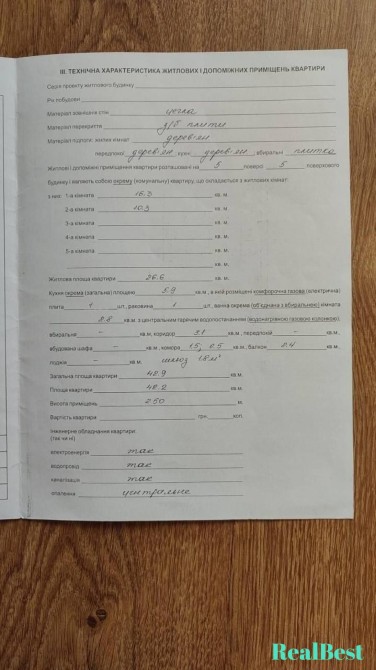 III. ТЕХНІЧНА ХАРАКТЕРИСТИКА ЖИТЛОВИХ І ДОПОМІЖНИХ ПРИМІЩЕНЬ КВАРТИРИ
Серія проекту житлового будинку
Рік побудови
Матеріал зовнішніх стін цегла
Матеріал перекриття з/б плити
Матеріал підлоги: житлих кімнат дерев-ян
передпокої дерев-ян, кухні дерев-ян, вбиральні плитка
Житлові і допоміжні приміщення квартири розташовані на 5 поверсі 5 поверхового
будинку і являють собою окрему (комунальну) квартиру, що складається з житлових кімнат:
з них: 1-а кімната 16.3 кв. м.
2-а кімната 10.3 кв. м.
3-а кімната кв. м.
4-а кімната кв. м.
5-а кімната кв. м.
кв. м.
Житлова площа квартири 26.6 кв. м.
Кухня окрема (загальна) площею 5.9 кв. м., в якій розміщені конфорочна газова (електрична)
плита 1 шт., раковина 1 шт., ванна окрема (об'єднана з вбиральнею) кімната
2.8 кв.м. з центральним гарячим водопостачанням (водонагрівною газовою колонкою),
вбиральня - кв.м., коридор 3.1 кв.м., передпокій - кв.м.
вбудована шафа - кв.м., комора 1.5, 0.5 кв.м., балкон 2.4 кв.м.
лоджія - кв.м. шлюз 1.8 м²
Загальна площа квартири 48.9 кв.м.
Площа квартири 48.2 кв.м.
Висота приміщень 2.50 м.
Вартість квартири грн. коп.
Інженерне обладнання квартири:
(так чи ні)
електроенергія так
водопровід так
каналізація так
опалення центральне
RealBest